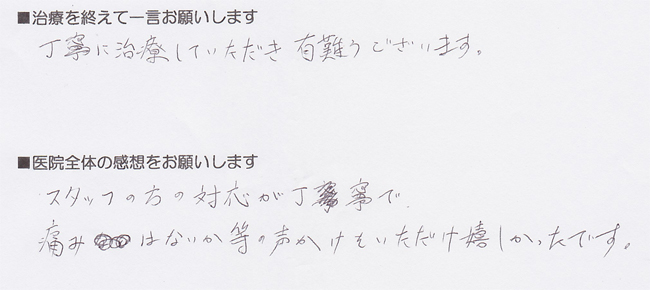 ■治療を終えて一言お願いします
丁寧に治療していただき有難うございます。
■医院全体の感想をお願いします
スタッフの方の対応が丁寧で、
痛みはないか等の声かけをいただけ嬉しかったです。